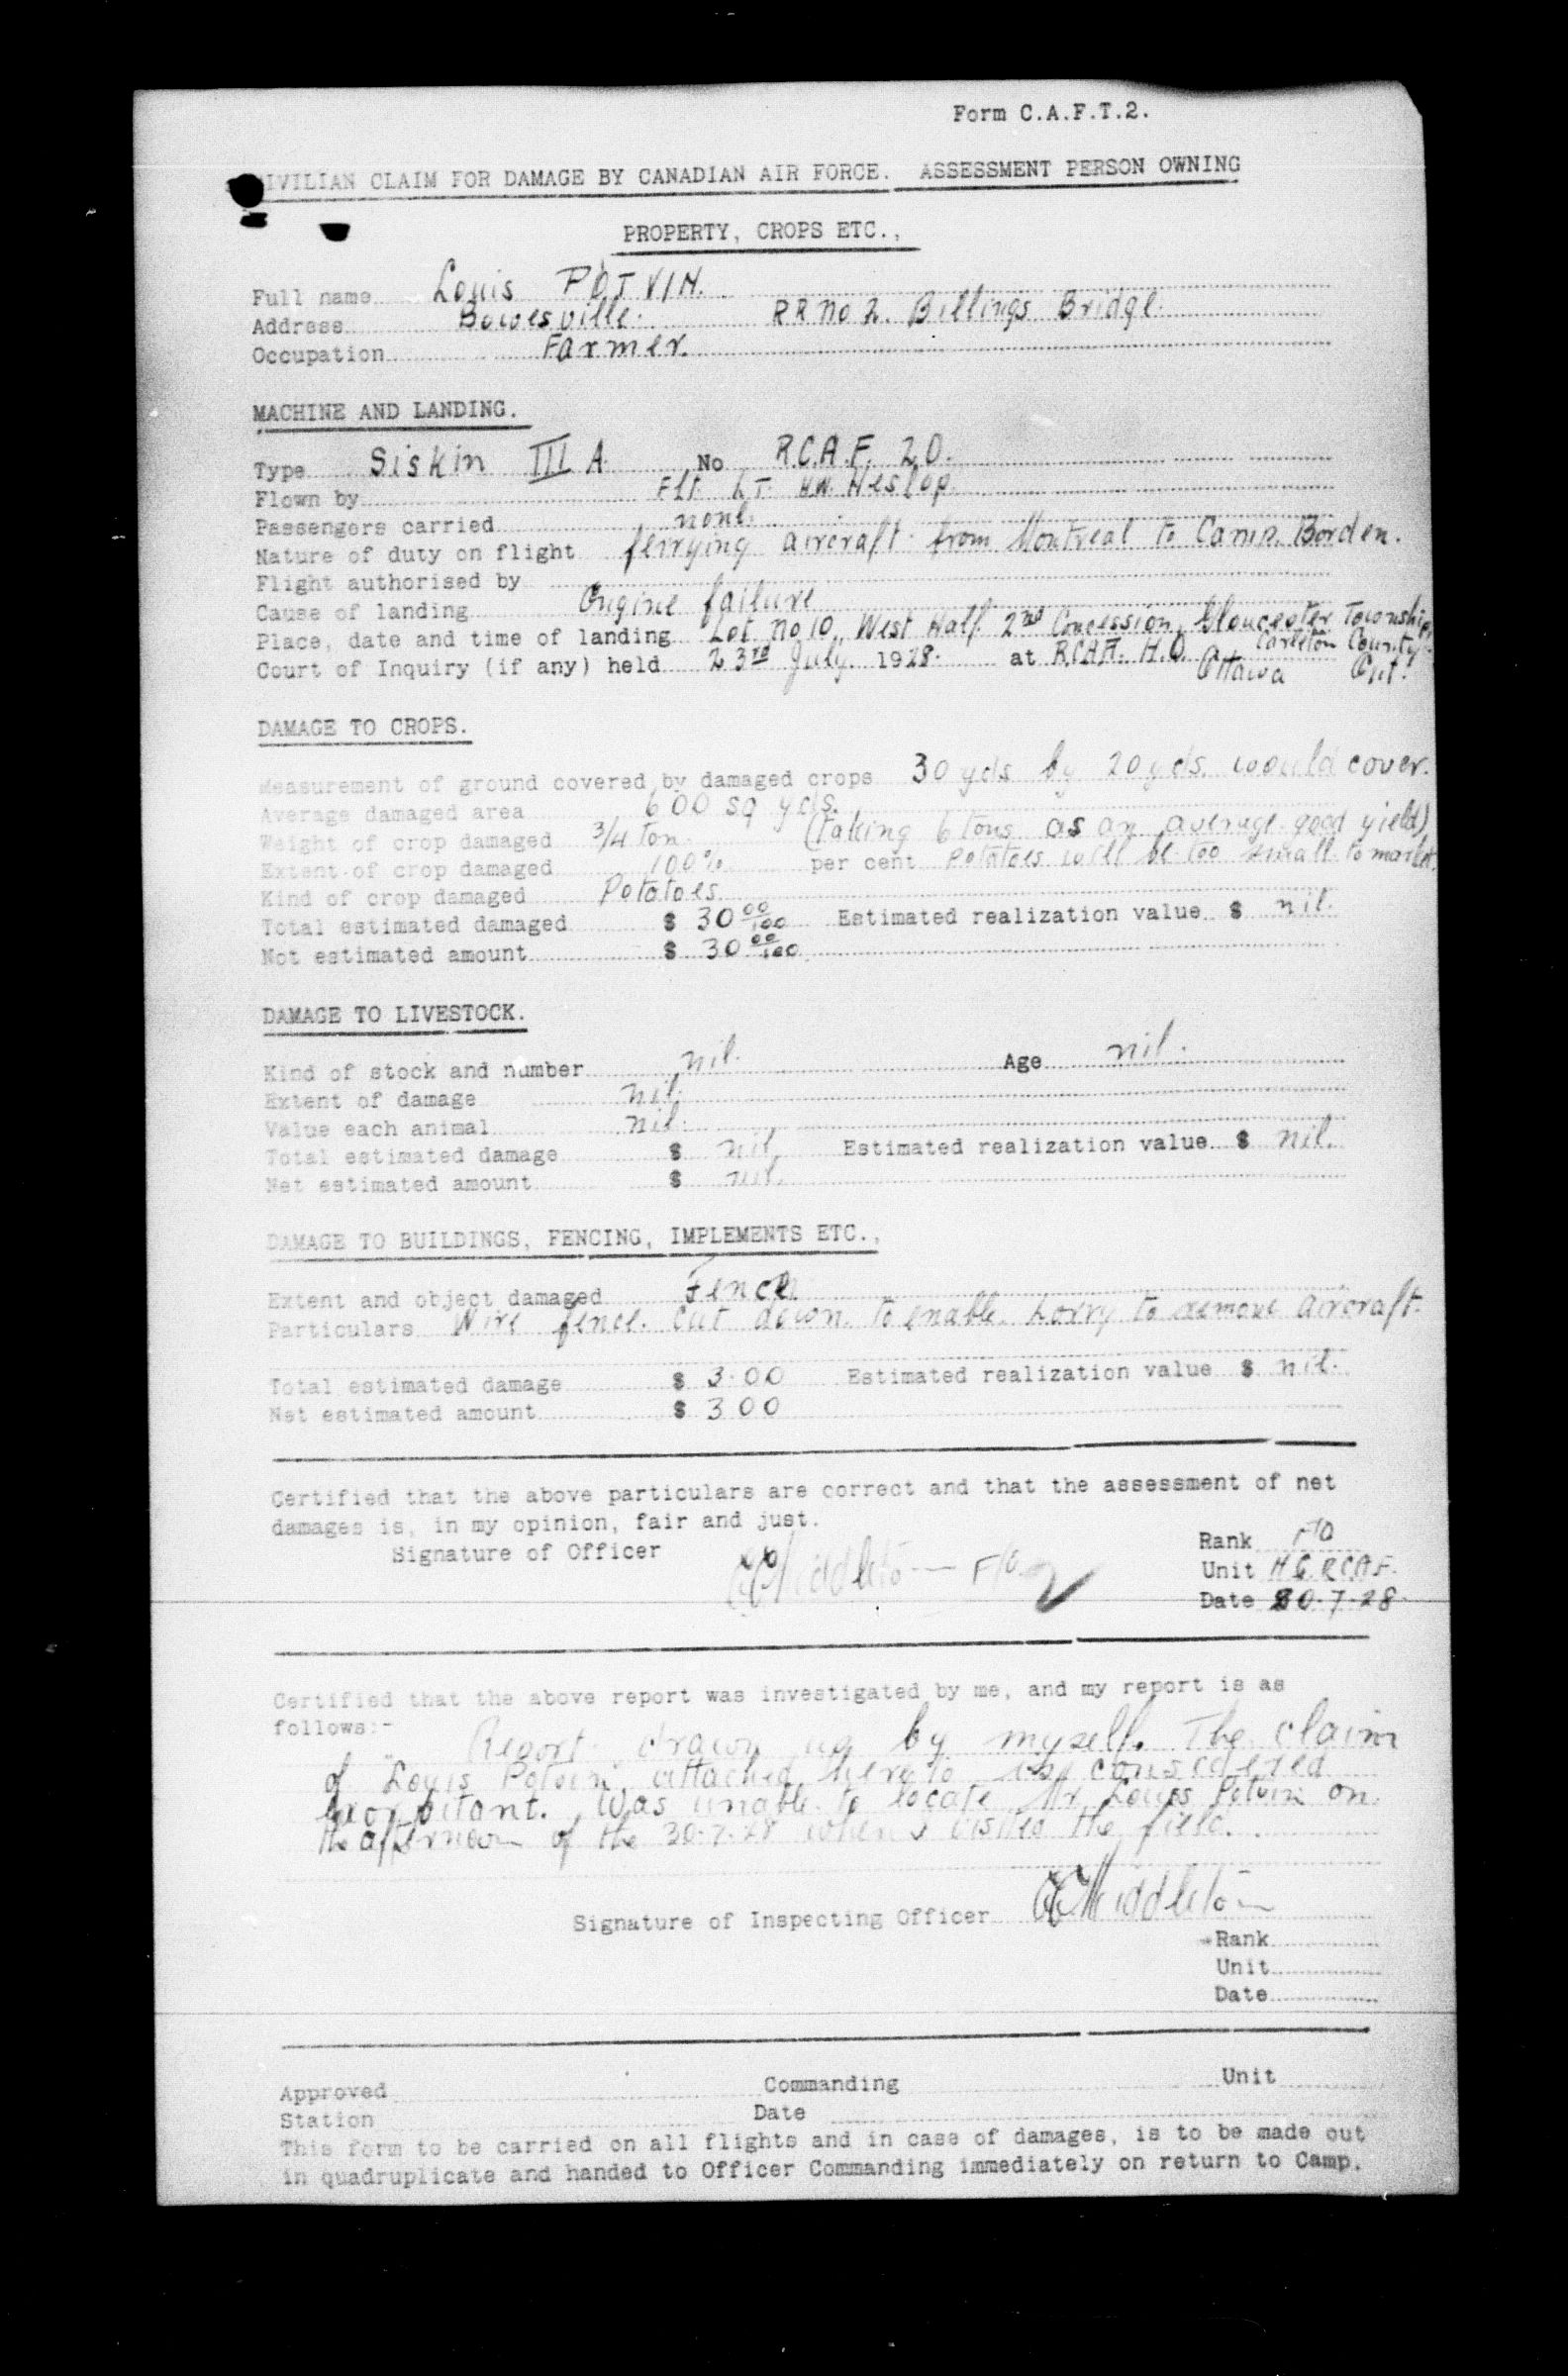 Form C.A.F.T.2.
CIVILIAN CLAIM FOR DAMAGE BY CANADIAN AIR FORCE. ASSESSMENT PERSON OWNING
PROPERTY, CROPS ETC.,
Full name Louis POTVIN.
Address Bowesville. RR No 2. Billings Bridge.
Occupation Farmer.
MACHINE AND LANDING.
Type Siskin III A. No R.C.A.F. 20.
Flown by Flt. Lt. H.W. Heslop.
Passengers carried none.
Nature of duty on flight ferrying aircraft from Montreal to Camp Borden.
Flight authorised by
Cause of landing Engine failure
Place, date and time of landing Lot No 10, West Half 2nd Concession, Gloucester Township,
Carleton County
Court of Inquiry (if any) held 23rd July 1928. at RCAF. H.Q. Ottawa Ont.
DAMAGE TO CROPS.
Measurement of ground covered by damaged crops 30 yds by 20 yds. would cover.
Average damaged area 600 sq yds.
Weight of crop damaged 3/4 ton. (taking 6 tons as an average good yield)
Extent of crop damaged 100% per cent Potatoes will be too small to market.
Kind of crop damaged Potatoes
Total estimated damaged $ 30 00/100 Estimated realization value $ nil.
Not estimated amount $ 30 00/100
DAMAGE TO LIVESTOCK.
Kind of stock and number nil. Age nil.
Extent of damage nil.
Value each animal nil.
Total estimated damage $ nil Estimated realization value $ nil.
Net estimated amount $ nil.
DAMAGE TO BUILDINGS, FENCING, IMPLEMENTS ETC.,
Extent and object damaged Fence.
Particulars Wire fence. Cut down to enable Lorry to remove aircraft.
Total estimated damage $ 3.00 Estimated realization value $ nil.
Net estimated amount $ 3 00
Certified that the above particulars are correct and that the assessment of net
damages is, in my opinion, fair and just.
Signature of Officer Middleton F/O
Rank F/O
Unit HQ RCAF.
Date 30.7.28.
Certified that the above report was investigated by me, and my report is as
follows:-
Report drawn up by myself. The claim
of "Louis Potvin" attached hereto is considered
exorbitant. Was unable to locate Mr Louis Potvin on
the afternoon of the 30.7.28 when I visited the field.
Signature of Inspecting Officer Middleton
Rank
Unit
Date
Approved Commanding Unit
Station Date
This form to be carried on all flights and in case of damages, is to be made out
in quadruplicate and handed to Officer Commanding immediately on return to Camp.